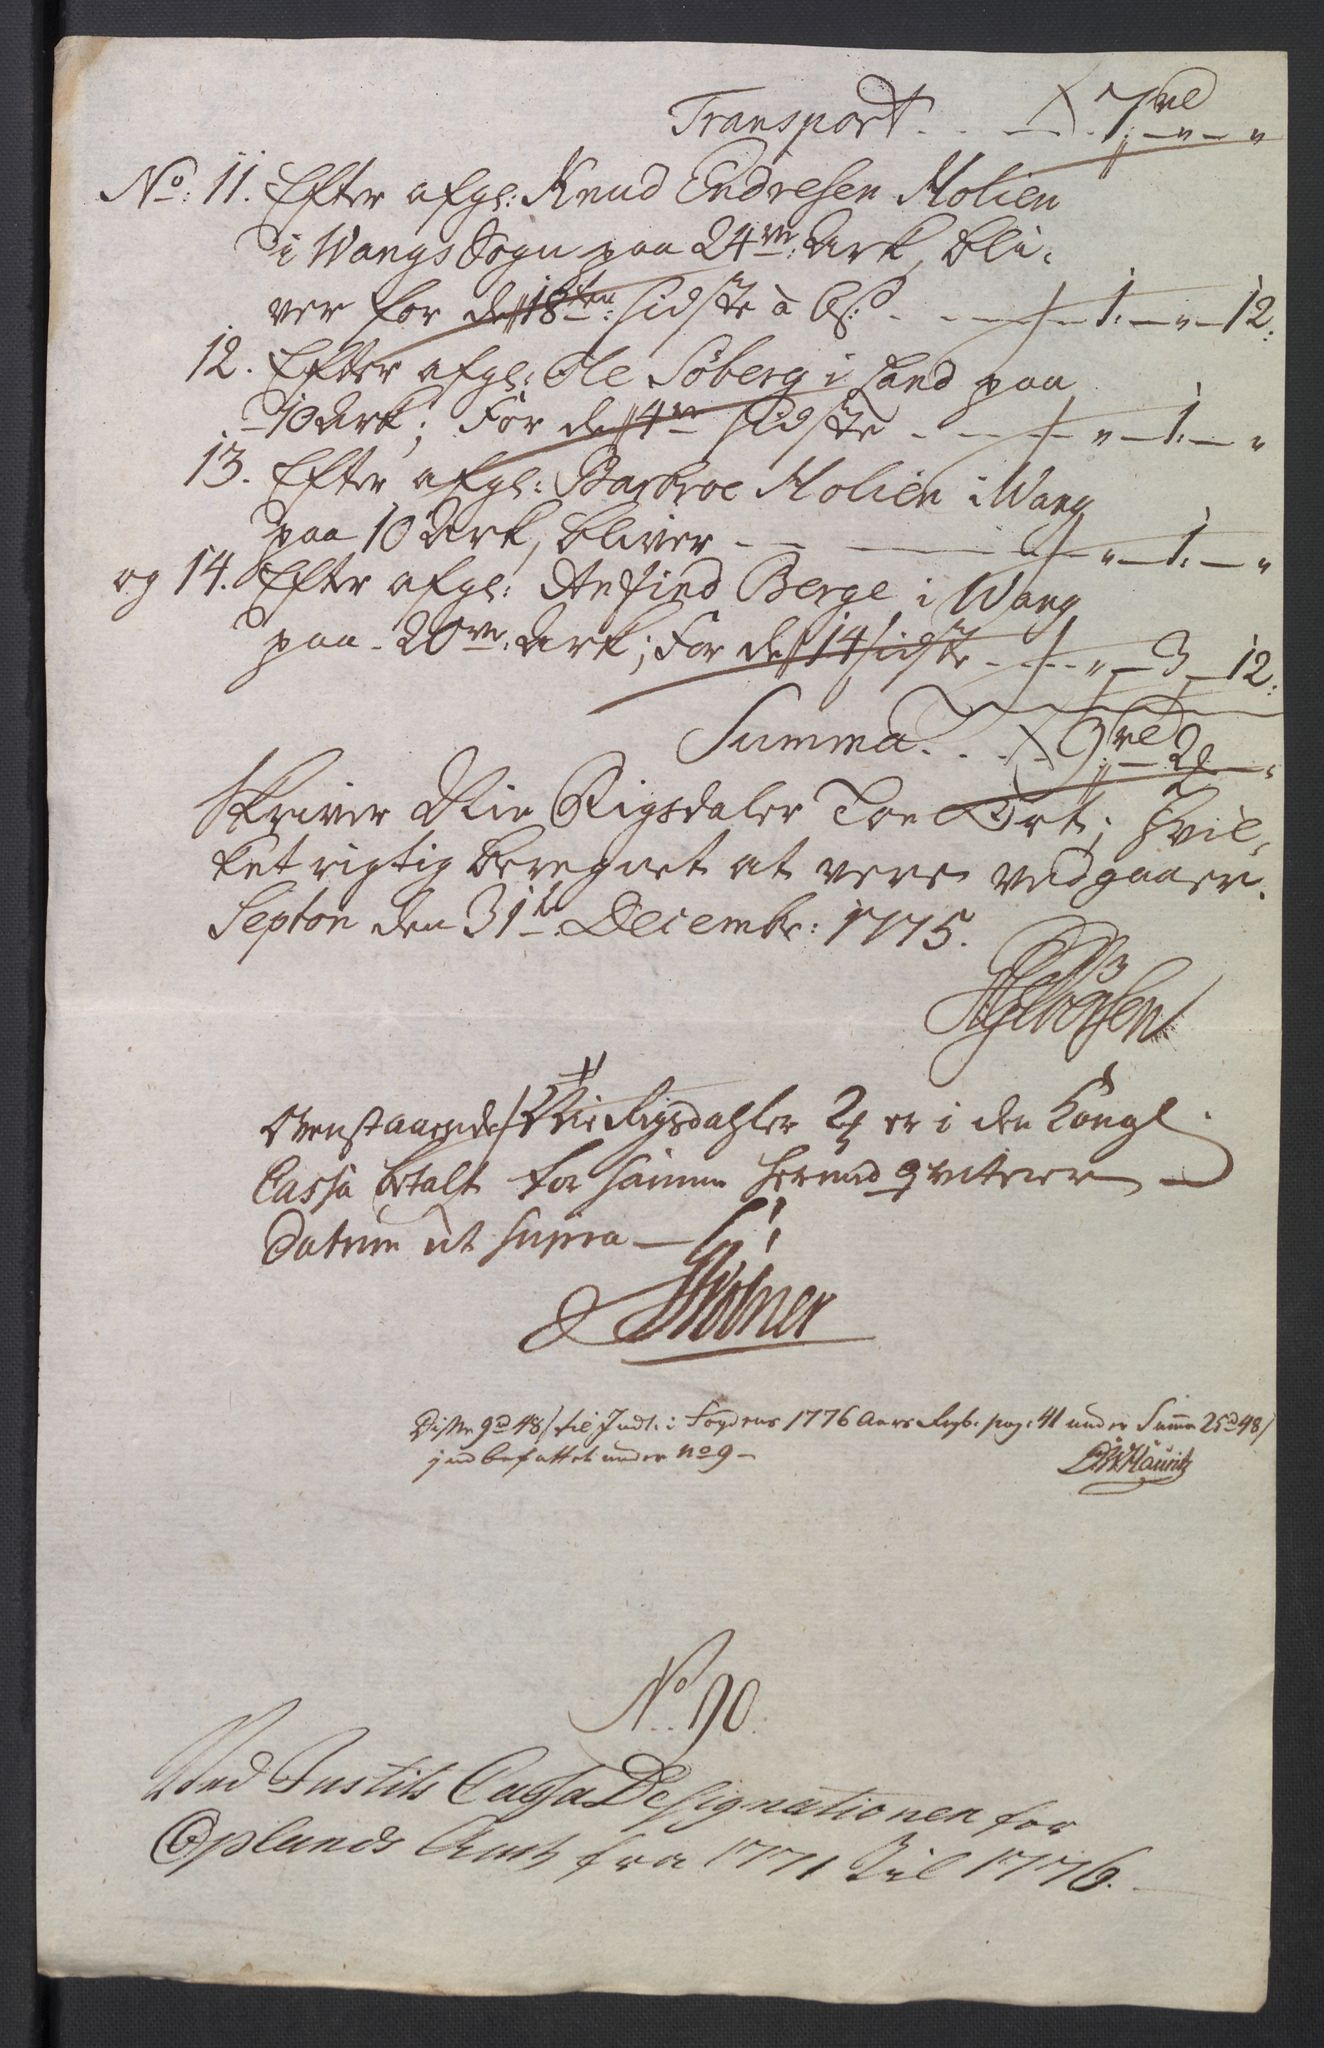 Transport . . — . 7 rd „ — „ — „
No: 11. Efter afgl: Knud Endresen Molien
i Wangs Sogn paa 24ve Ark, bli-
ver for de 18ten sidste a 6 s . . — — 1. — „ — 12.
12. Efter afgl: Ole Søberg i Land paa
10 Ark; For de 4re sidste . — . — „ — 1. — „
13. Efter afgl: Barbroe Molien i Wang
paa 10 Ark, bliver — — — „ — 1. — „
og 14. Efter afgl: Anfind Berge i Wang
paa 20ve Ark; For de 14 sidste . — . . „ — 3 — 12.
Summa . . . 9 rd — 2 — „
skriver Nie Rigsdaler Toe Ort; hvil-
ket rigtig beregnet at være vedgaaer.
Septon den 31te Decembr: 1775.
Ovenstaaende Nie Rigsdahler 2 er i den Kongl.
Cassa betalt for samme herved qviterer —
Datum ut supra —
Disse 9 d 48 s til Indt: i Fogdens 1776 Aars Regb. pag: 41 under Summa 25 d 48 s
indbefattet under No 9 —
No. 90.
Ved Justits Cassa Designationen for
Oplands Amt fra 1771 til 1776.